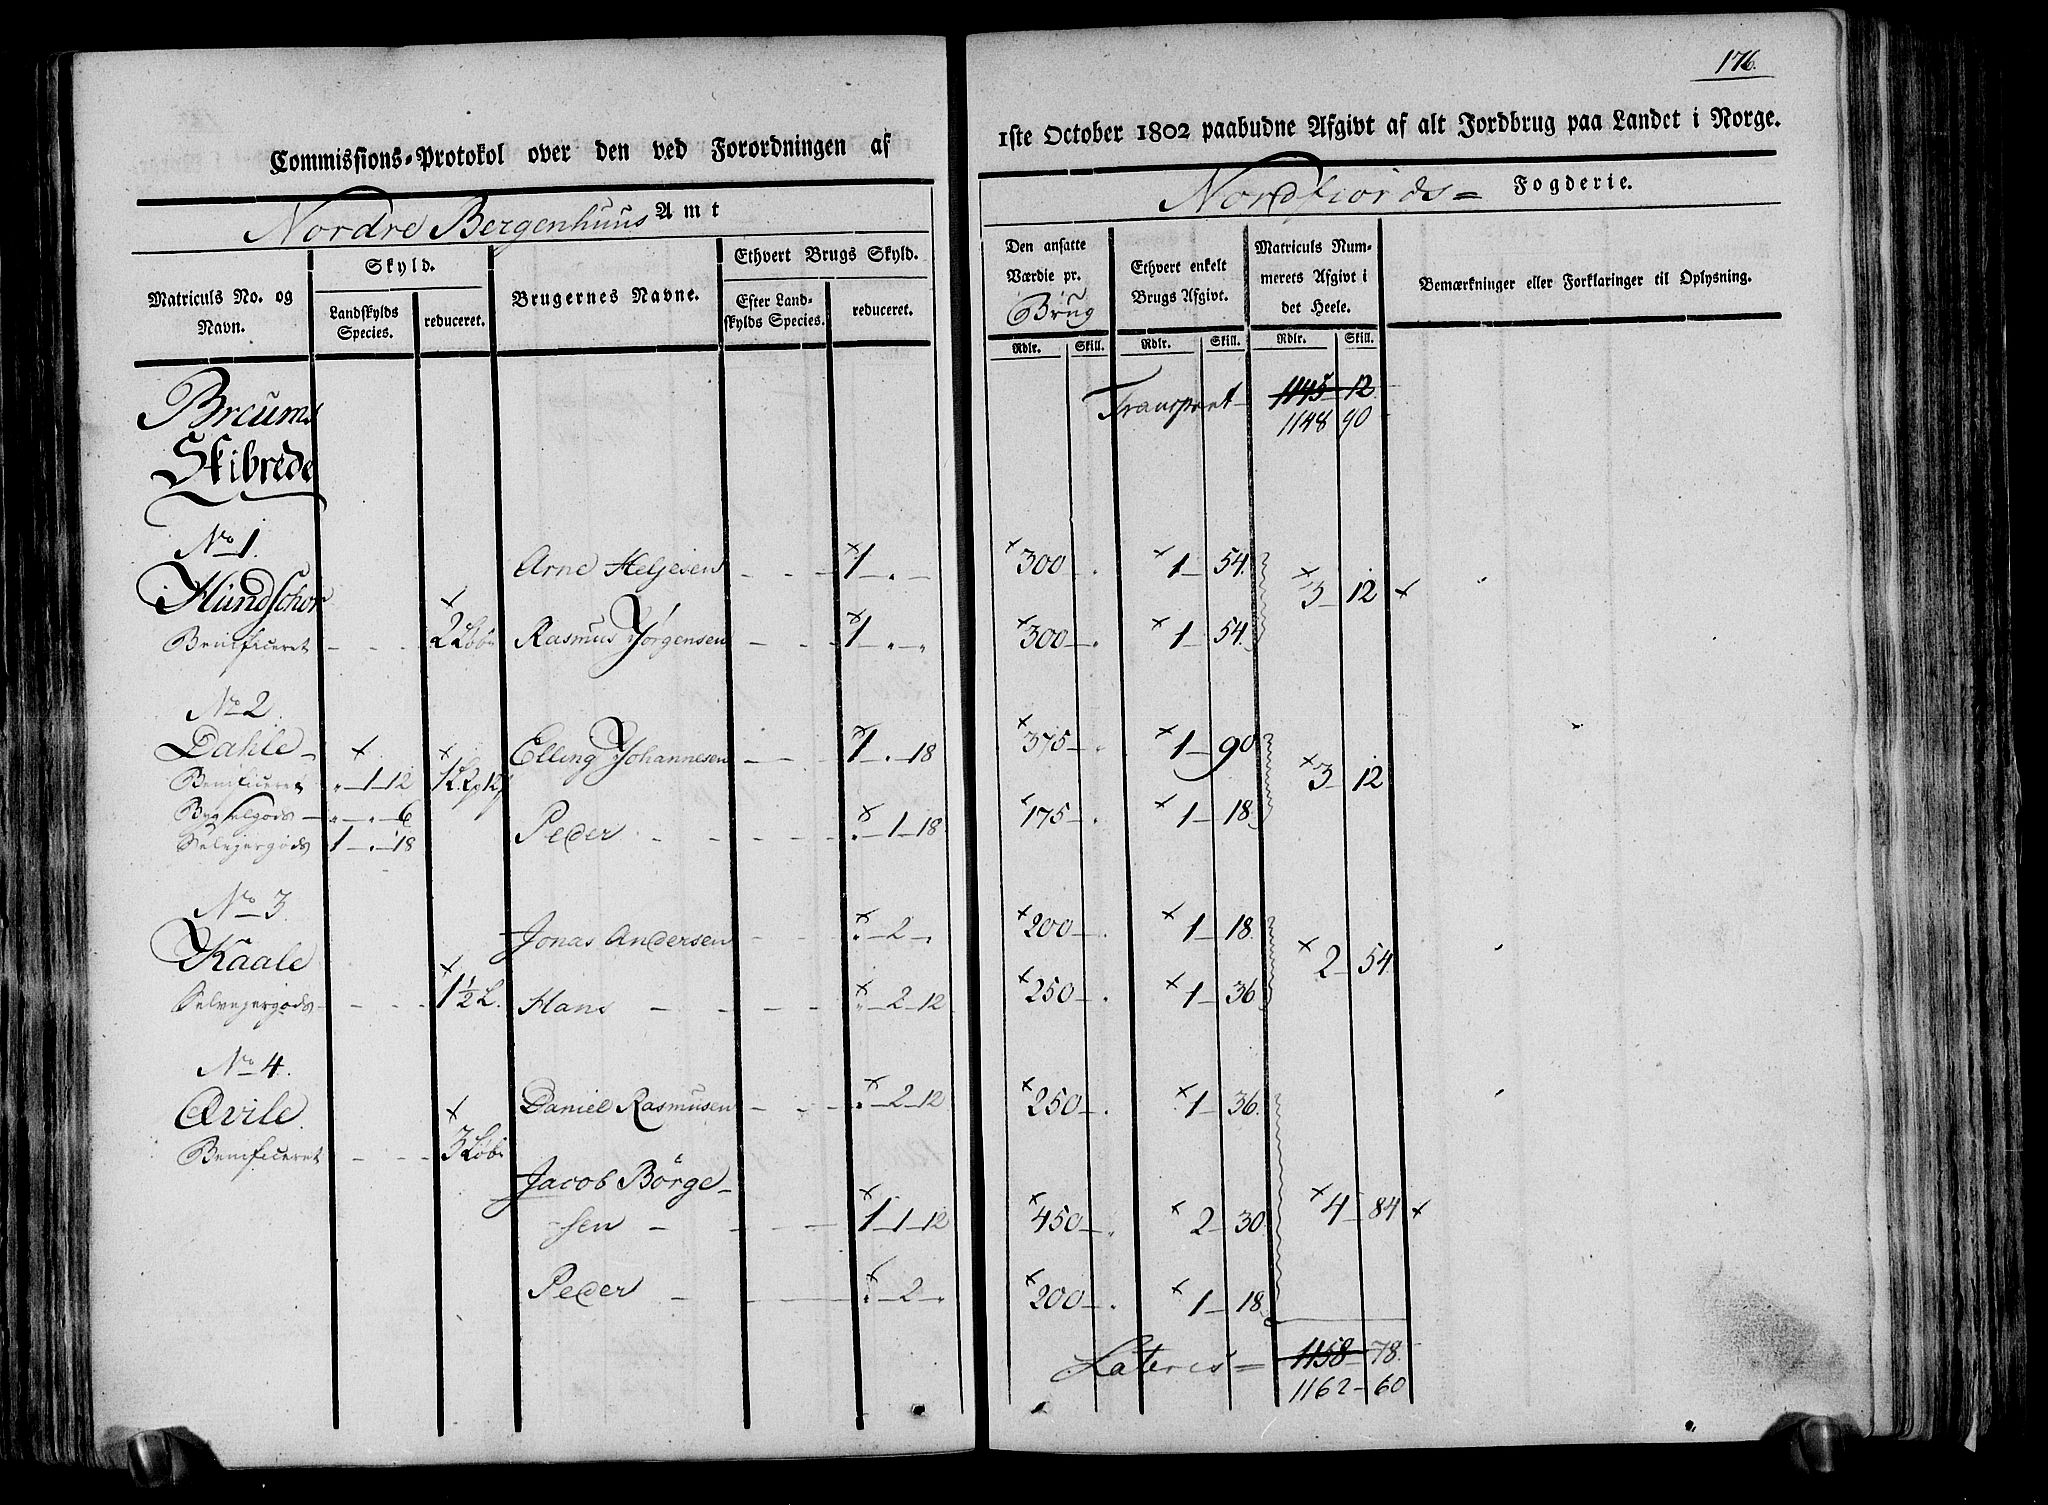 176.
Commissions-Protokol over den ved Forordningen af
1ste October 1802 paabudne Afgivt af alt Jordbrug paa Landet i Norge.
Nordre Bergenhuus Amt
Nordfiords= Fogderie.
Matriculs No. og Navn.
Skyld.
Landskylds Species.
reduceret.
Brugernes Navne.
Ethvert Brugs Skyld.
Efter Landskylds Species.
reduceret.
Den ansatte Værdie pr. Brug
Rdlr. Skill.
Ethvert enkelt Brugs Afgivt.
Rdlr. Skill.
Matriculs Nummerets Afgivt i det Heele.
Rdlr. Skill.
Bemærkninger eller Forklaringer til Oplysning.
Breums
Skibrede
Transport 1145 - 12
1148 90
No 1.
Arne Heljesen - - - 1 - . - 300 - . 1 - 54.
Hundschor 3 - 12
Benificeret - - - 2 Løb Rasmus Jørgensen - - - 1 - . - . 300 - . 1 - 54.
No 2.
Dahle - Elling Johannesen - - - 1 - . - 18 375 - . 1 - 90
Benificeret . - 1 - 12 3 - 12
Bygselgods - . - . - 6 Peder - - - . - 1 - 18 175 - . 1 - 18
Selvejergods 1 - . - 18
No 3.
Jonas Andersen - - . - 2 - . 200 - . 1 - 18
Kaale 2 - 54
Selvejergods - - - 1 1/2 L. Hans - - - . - 2 - 12 250 - . 1 - 36
No 4.
Qvile Daniel Rasmusen - - . - 2 - 12 250 - . 1 - 36.
Benificeret - - - 3 Løb
Jacob Börge-
sen - - - 1 - 1 - 12 450 - . 2 - 30 4 - 84
Peder - - - . - 2 - . 200 - . 1 - 18
Lateris = 1158 - 78.
1162 - 60